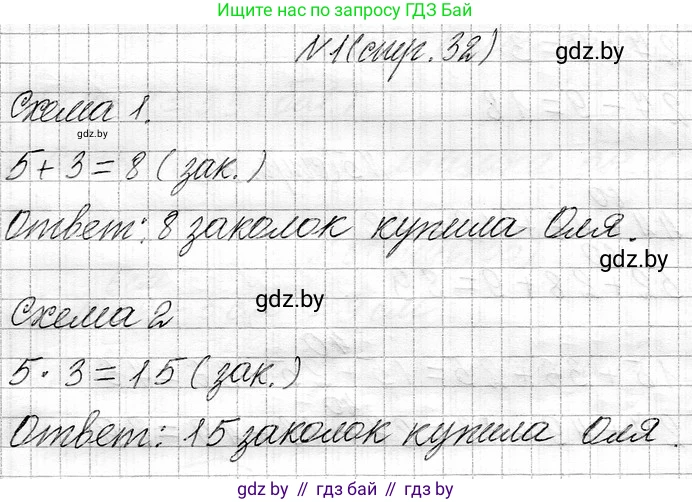 Ищите нас по запросу ГДЗ Бай
№1(стр. 32)
gdz.by
Схема 1.
gdz.by
5 + 3 = 8 ( зак. )
Ответ: 8 заколок купила Оля.
gdz.by
gdz.by
Схема 2
5 · 3 = 15 ( зак. )
Ответ: 15 заколок купила Оля.
gdz.by // гдз бай // gdz.by